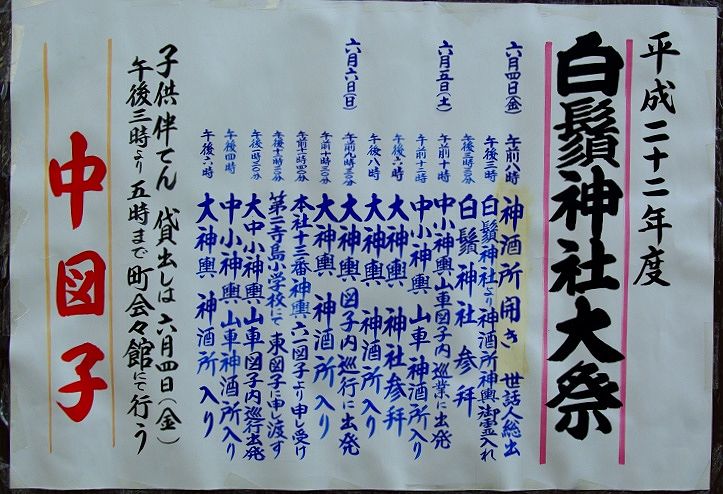 平成二十二年度
白鬚神社大祭
六月四日(金) 午前八時 神酒所開き 世話人総出
午後三時 白鬚神社より神酒所神輿御霊入れ
午後三時三〇分 白鬚神社参拝
六月五日(土) 午前十時 中小神輿山車図子内巡業に出発
午前十二時 中小神輿 山車 神酒所入り
午後六時 大神輿 神社参拝
午後八時 大神輿 神酒所入り
六月六日(日) 午前九時三〇分 大神輿 図子内巡行に出発
午前十時三〇分 大神輿 神酒所入り
午前十時四〇分 本社十三番神輿 六一図子より申し受け
午後十二時三〇分 第二寺島小学校にて東図子に申し渡す
午後一時三〇分 大中小神輿 山車図子内巡行出発
午後四時 中小神輿 山車神酒所入り
午後六時 大神輿 神酒所入り
子供伴てん 貸出しは 六月四日(金)
午後三時より 五時まで 町会々館にて行う
中図子